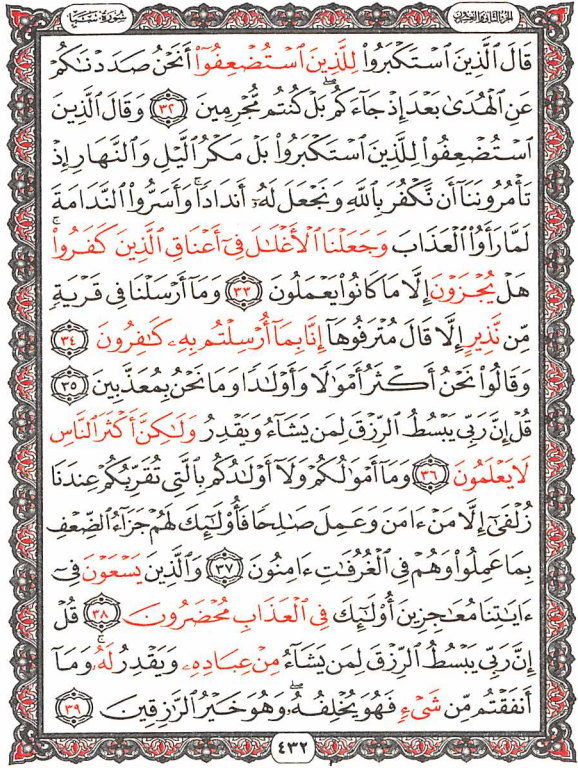 الجزء الثاني والعشرون
سورة سبإ
قَالَ ٱلَّذِينَ ٱسۡتَكۡبَرُواْ لِلَّذِينَ ٱسۡتُضۡعِفُوٓاْ أَنَحۡنُ صَدَدۡنَٰكُمۡ
عَنِ ٱلۡهُدَىٰ بَعۡدَ إِذۡ جَآءَكُمۖ بَلۡ كُنتُم مُّجۡرِمِينَ ٣٢ وَقَالَ ٱلَّذِينَ
ٱسۡتُضۡعِفُواْ لِلَّذِينَ ٱسۡتَكۡبَرُواْ بَلۡ مَكۡرُ ٱلَّيۡلِ وَٱلنَّهَارِ إِذۡ
تَأۡمُرُونَنَآ أَن نَّكۡفُرَ بِٱللَّهِ وَنَجۡعَلَ لَهُۥٓ أَندَادٗاۚ وَأَسَرُّواْ ٱلنَّدَامَةَ
لَمَّا رَأَوُاْ ٱلۡعَذَابَ وَجَعَلۡنَا ٱلۡأَغۡلَٰلَ فِيٓ أَعۡنَاقِ ٱلَّذِينَ كَفَرُواْۚ
هَلۡ يُجۡزَوۡنَ إِلَّا مَا كَانُواْ يَعۡمَلُونَ ٣٣ وَمَآ أَرۡسَلۡنَا فِي قَرۡيَةٖ
مِّن نَّذِيرٍ إِلَّا قَالَ مُتۡرَفُوهَآ إِنَّا بِمَآ أُرۡسِلۡتُم بِهِۦ كَٰفِرُونَ ٣٤
وَقَالُواْ نَحۡنُ أَكۡثَرُ أَمۡوَٰلٗا وَأَوۡلَٰدٗا وَمَا نَحۡنُ بِمُعَذَّبِينَ ٣٥
قُلۡ إِنَّ رَبِّي يَبۡسُطُ ٱلرِّزۡقَ لِمَن يَشَآءُ وَيَقۡدِرُ وَلَٰكِنَّ أَكۡثَرَ ٱلنَّاسِ
لَا يَعۡلَمُونَ ٣٦ وَمَآ أَمۡوَٰلُكُمۡ وَلَآ أَوۡلَٰدُكُم بِٱلَّتِي تُقَرِّبُكُمۡ عِندَنَا
زُلۡفَىٰٓ إِلَّا مَنۡ ءَامَنَ وَعَمِلَ صَٰلِحٗا فَأُوْلَٰٓئِكَ لَهُمۡ جَزَآءُ ٱلضِّعۡفِ
بِمَا عَمِلُواْ وَهُمۡ فِي ٱلۡغُرُفَٰتِ ءَامِنُونَ ٣٧ وَٱلَّذِينَ يَسۡعَوۡنَ فِيٓ
ءَايَٰتِنَا مُعَٰجِزِينَ أُوْلَٰٓئِكَ فِي ٱلۡعَذَابِ مُحۡضَرُونَ ٣٨ قُلۡ
إِنَّ رَبِّي يَبۡسُطُ ٱلرِّزۡقَ لِمَن يَشَآءُ مِنۡ عِبَادِهِۦ وَيَقۡدِرُ لَهُۥۚ وَمَآ
أَنفَقۡتُم مِّن شَيۡءٖ فَهُوَ يُخۡلِفُهُۥۖ وَهُوَ خَيۡرُ ٱلرَّٰزِقِينَ ٣٩
٤٣٢